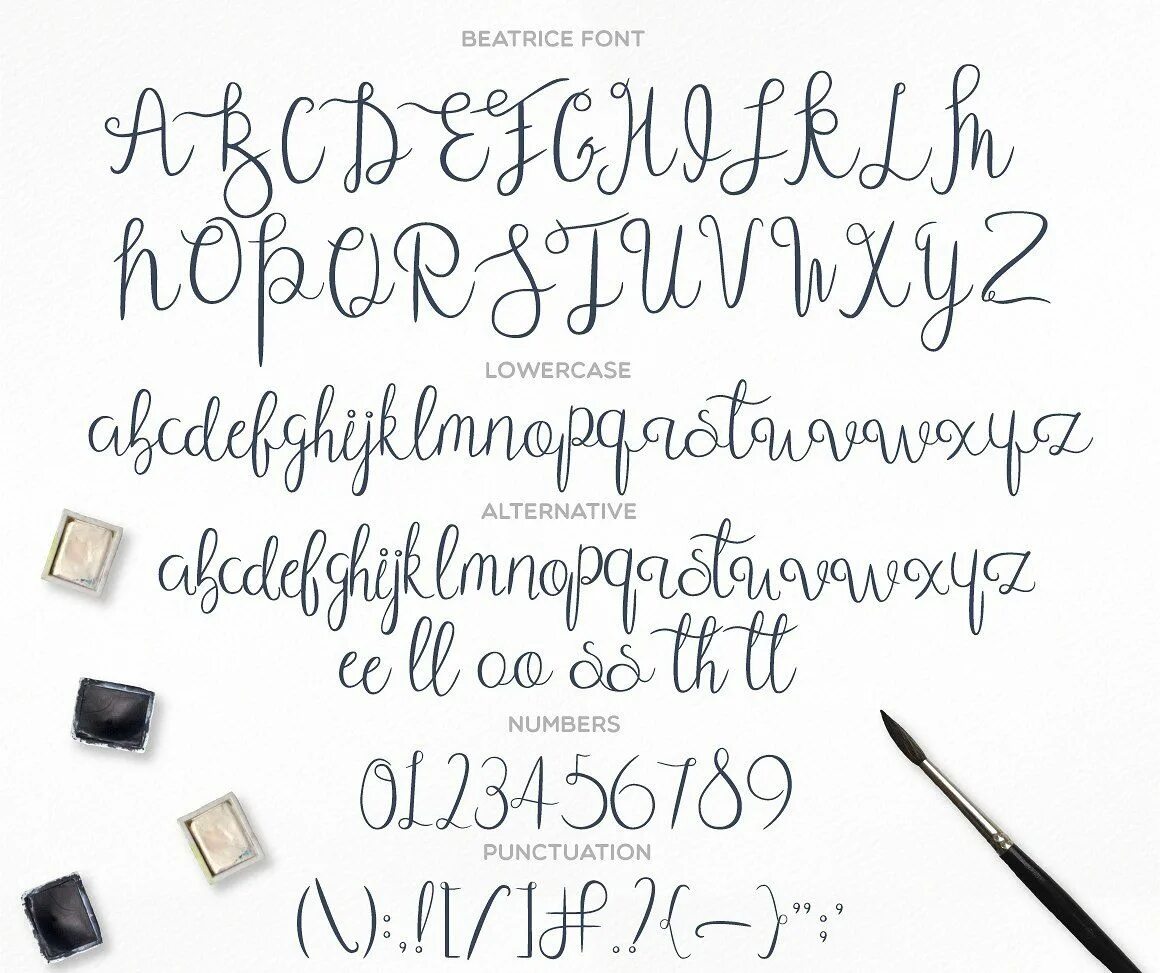 BEATRICE FONT
ABCDEFGHIJKLM
NOPQRSTUVWXYZ
LOWERCASE
abcdefghijklmnopqrstuvwxyz
ALTERNATIVE
abcdefghijklmnopqrstuvwxyz
ee ll oo ss th tt
NUMBERS
0123456789
PUNCTUATION
(\):,![/]#.?{—}”;’